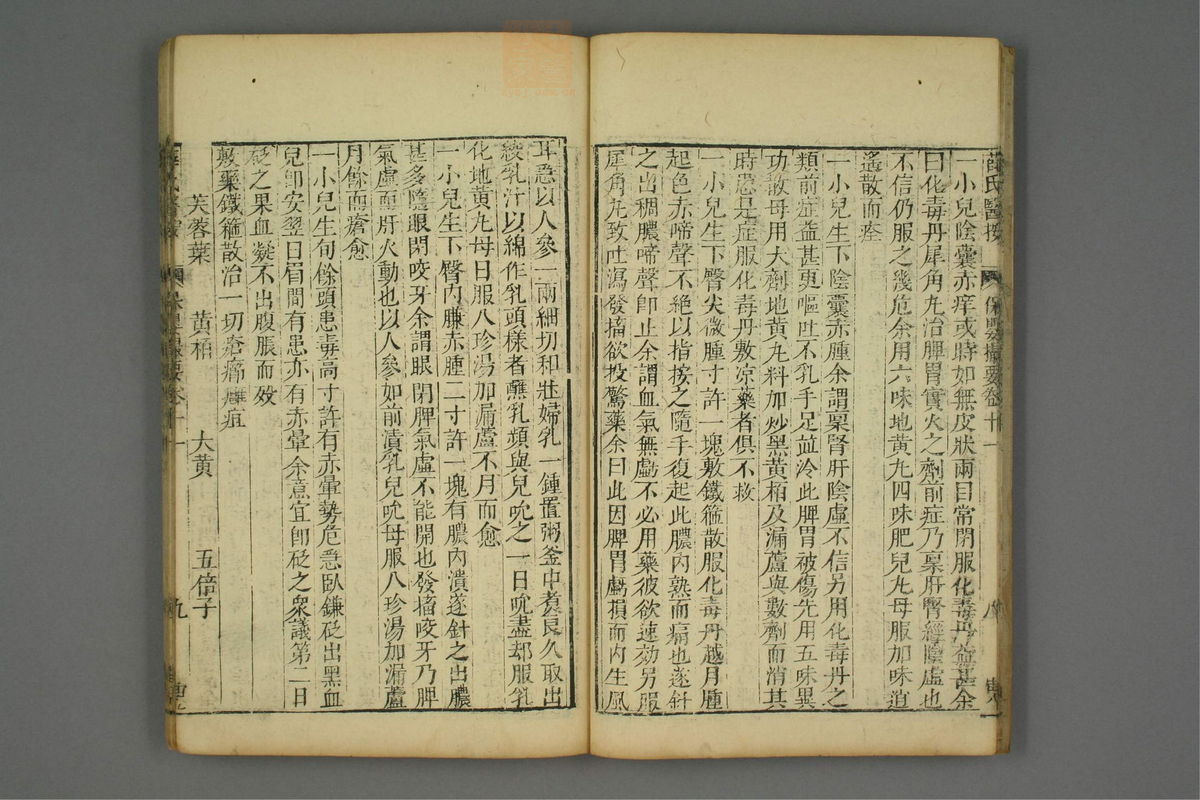 薛氏醫按
保嬰撮要卷十一
一小兒陰囊赤痒或時如無皮狀兩目常閉服化毒丹益甚余
曰化毒丹犀角丸治脾胃實火之劑前症乃稟肝腎經陰虛也
不信仍服之幾危余用六味地黃丸四味肥兒丸母服加味逍
遙散而痊
一小兒生下陰囊赤腫余謂稟腎肝陰虛不信另用化毒丹之
類前症益甚更嘔吐不乳手足並冷此脾胃被傷先用五味異
功散母用大劑地黃丸料加炒黑黃栢及漏蘆與數劑而消其
時患是症服化毒丹敷凉藥者俱不救
一小兒生下臀尖微腫寸許一塊敷鐵箍散服化毒丹越月腫
起色赤啼聲不絕以指按之隨手復起此膿內熟而痛也遂針
之出稠膿啼聲卽止余謂血氣無虧不必用藥彼欲速効另服
犀角丸致吐瀉發搐欲投驚藥余曰此因脾胃虧損而內生風
耳急以人參一兩細切和壯婦乳一鍾置粥釜中煮良久取出
綾乳汁以綿作乳頭樣者蘸乳頻與兒吮之一日吮盡却服乳
化地黃丸母日服八珍湯加漏蘆不月而愈
一小兒生下臀內臁赤腫二寸許一塊有膿內潰遂針之出膿
甚多隨眼閉咬牙余謂眼閉脾氣虛不能開也發搐咬牙乃脾
氣虛而肝火動也以人參如前漬乳兒吮母服八珍湯加漏蘆
月餘而瘡愈
一小兒生旬餘頭患毒高寸許有赤暈勢危急臥鎌砭出黑血
兒卽安翌日眉間有患亦有赤暈余意宜卽砭之衆議第二日
砭之果血凝不出腹脹而殁
敷藥鐵箍散治一切瘡癤癰疽
芙蓉葉 黃栢 大黃 五倍子
九